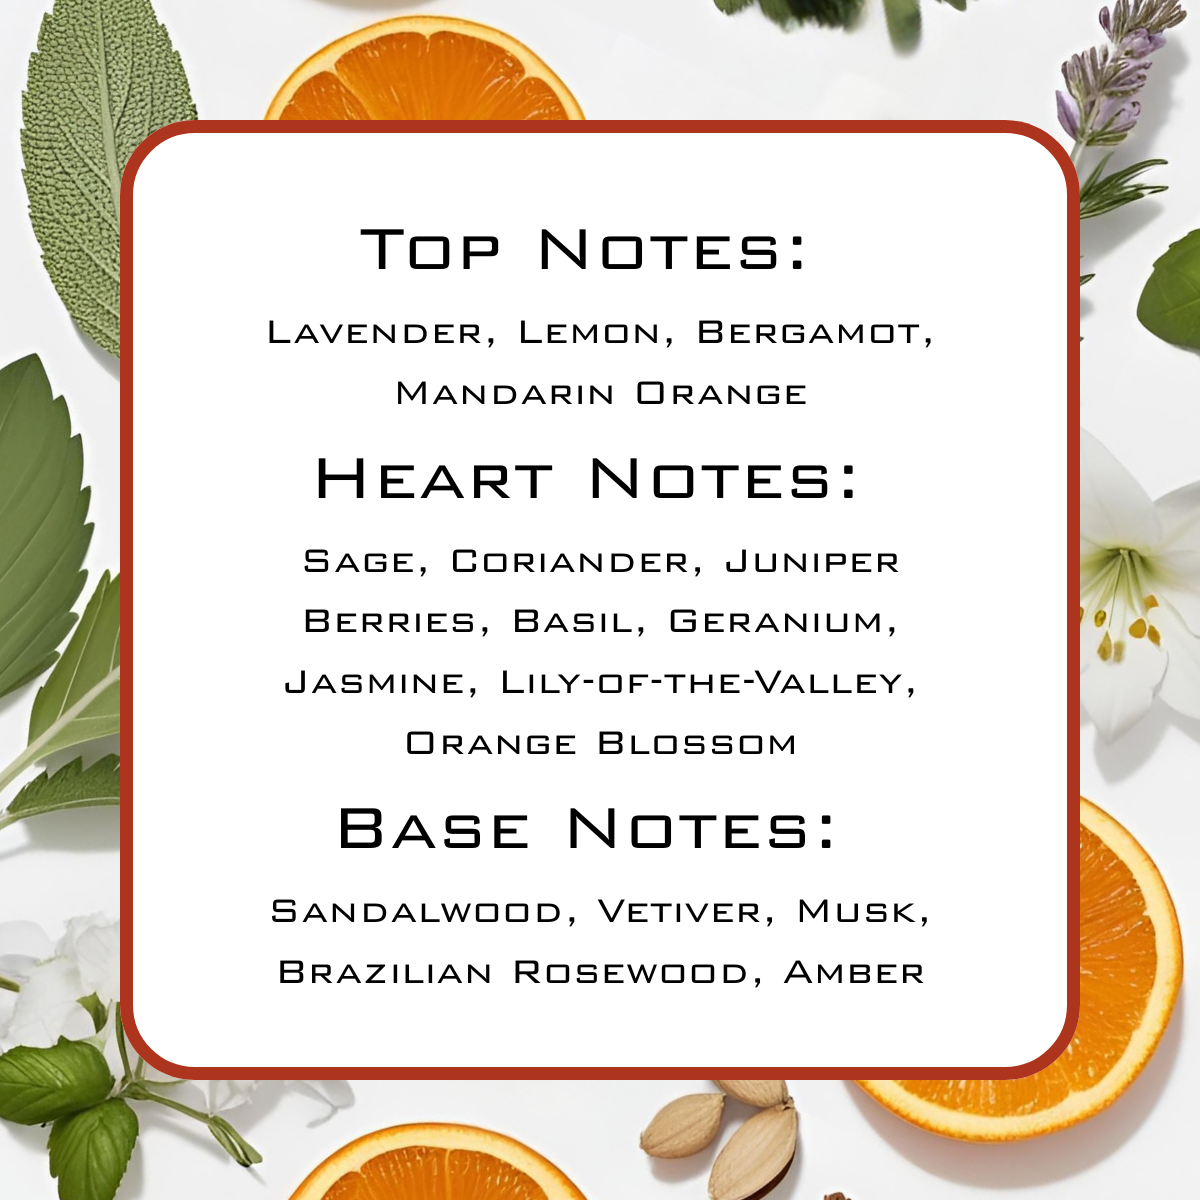 Top Notes:
Lavender, Lemon, Bergamot,
Mandarin Orange
Heart Notes:
Sage, Coriander, Juniper
Berries, Basil, Geranium,
Jasmine, Lily-of-the-Valley,
Orange Blossom
Base Notes:
Sandalwood, Vetiver, Musk,
Brazilian Rosewood, Amber